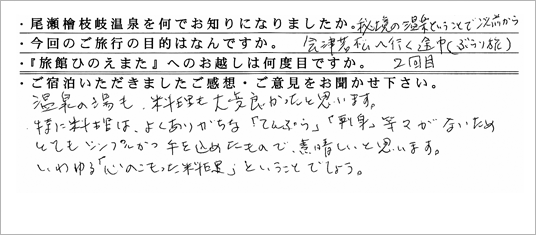 ・尾瀬檜枝岐温泉を何でお知りになりましたか。秘境の温泉ということで以前から
・今回のご旅行の目的はなんですか。 会津若松へ行く途中(ぶらり旅)
・『旅館ひのえまた』へのお越しは何度目ですか。 2回目
・ご宿泊いただきましたご感想・ご意見をお聞かせ下さい。
温泉の湯も、料理も大変良かったと思います。
特に料理は、よくありがちな「てんぷら」「刺身」等々がないため
とてもシンプルかつ手を込めたもので、素晴しいと思います。
いわゆる「心のこもった料理」ということでしょう。